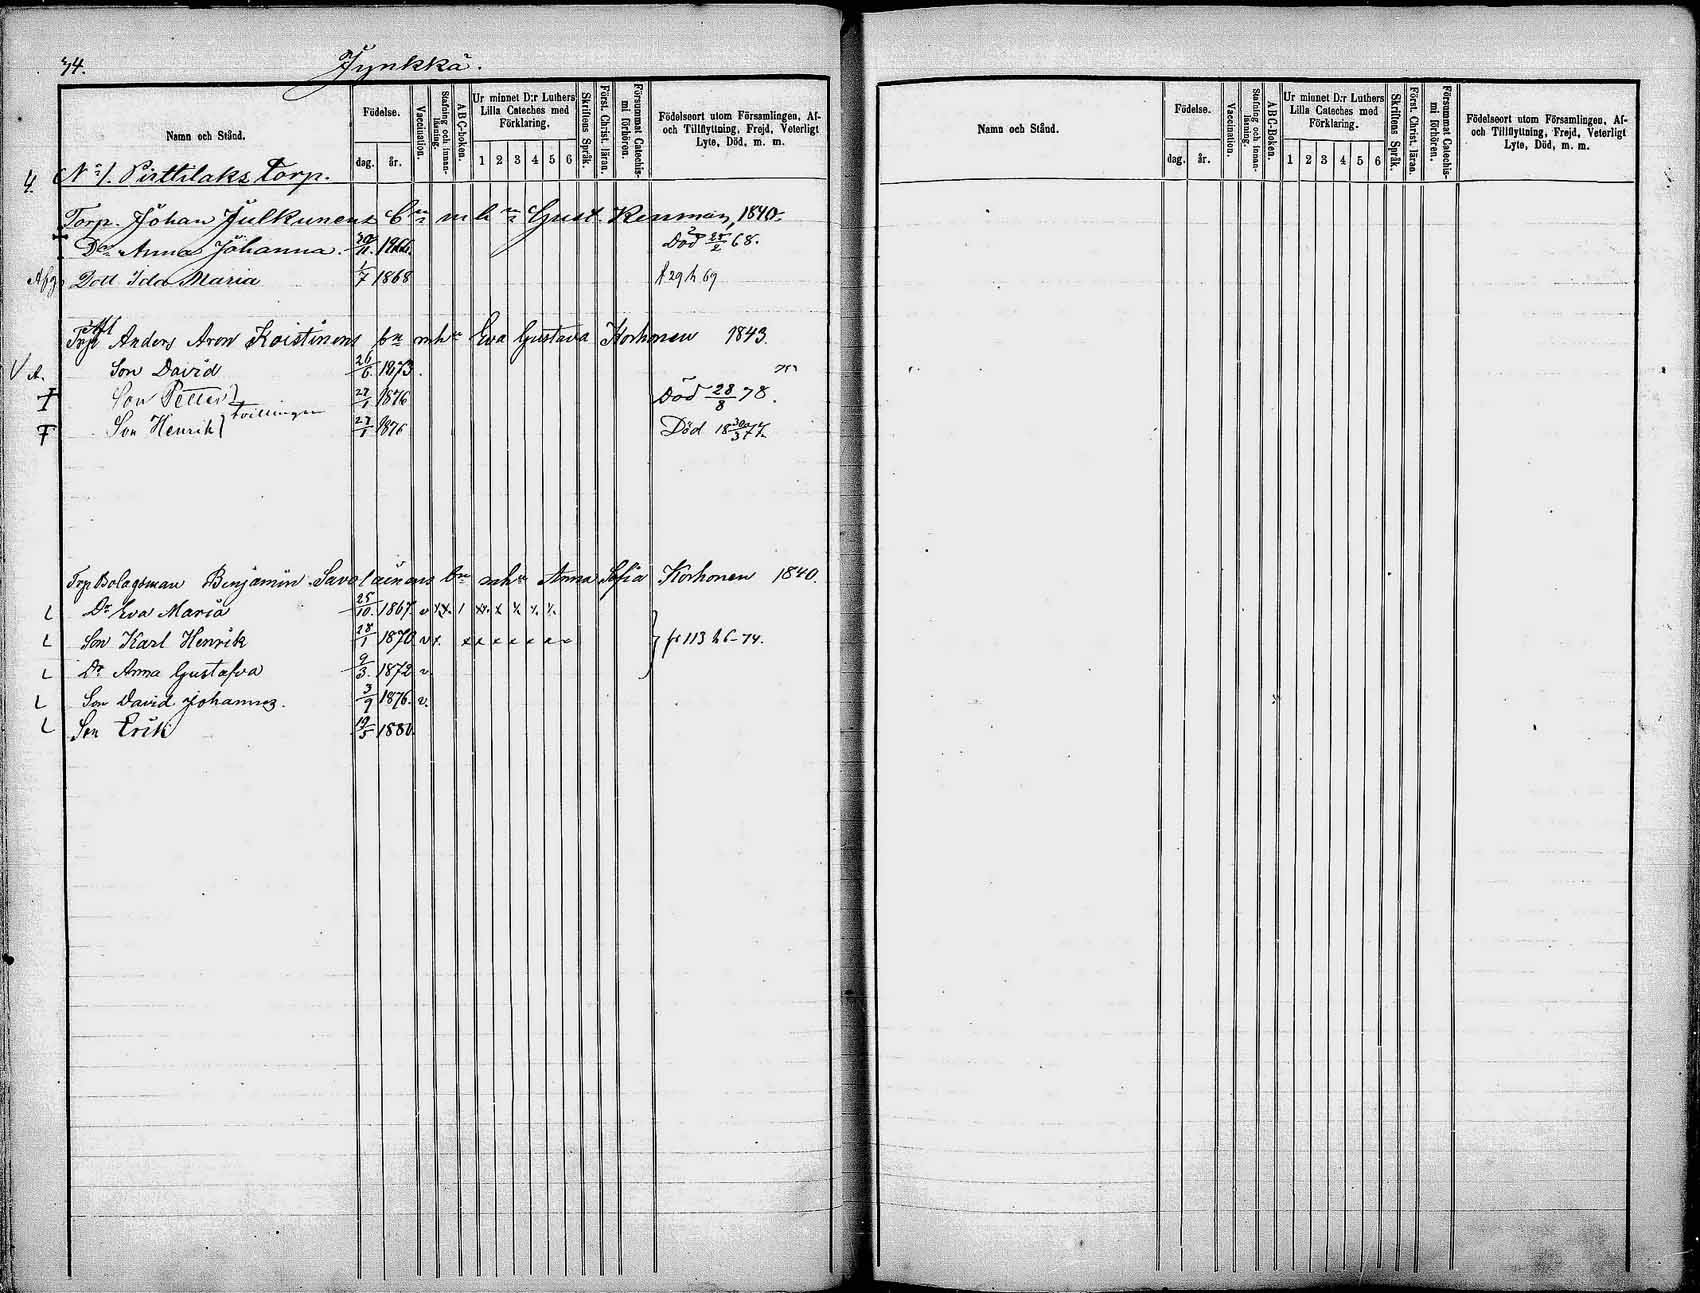 74.
Jynkkä.
Namn och Stånd.
Födelse.
dag.
år.
Vaccination.
Stafning och innanläsning.
ABC-boken.
Ur minnet D:r Luthers Lilla Cateches med Förklaring.
1 2 3 4 5 6
Skriftens Språk.
Först. Christ. läran.
Försummat Catechismi förhören.
Födelseort utom Församlingen, Af- och Tillflyttning, Frejd, Veterligt Lyte, Död, m. m.
4. No 1. Pirttilaks Torp.
Torp. Johan Julkunens bn m h u Gust. Renman, 1840.
Dr Anna Johanna. 1866. Död 25/2 68.
Afg. Dott Ida Maria 1/7 1868 f 29 h 69
Torp Anders Aron Koistinens bn mhu Eva Gustava Korhonen 1843.
Son David 26/6. 1873.
Son Petter 27/1 1876 Död 28/8 78.
tvillingar
Son Henrik 27/1 1876 Död 18 30/3 77.
Trp Bolagsman Benjamin Savolainens bn mhu Anna Sofia Korhonen 1840.
L Dr Eva Maria 25/10. 1867. v x x. 1 x x x x x x
L Son Karl Henrik 28/1 1870 v x. x x x x x x x } fr 113 h 6–74.
L Dr Anna Gustafva 9/3. 1872 v
L Son David Johannes. 3/9 1876. v.
L Son Erik 19/5 1880.
Namn och Stånd.
Födelse.
dag.
år.
Vaccination.
Stafning och innanläsning.
ABC-Boken.
Ur minnet D:r Luthers Lilla Cateches med Förklaring.
1 2 3 4 5 6
Skriftens Språk.
Först. Christ. läran.
Försummat Catechismi förhören.
Födelseort utom Församlingen, Af- och Tillflyttning, Frejd, Veterligt Lyte, Död, m. m.